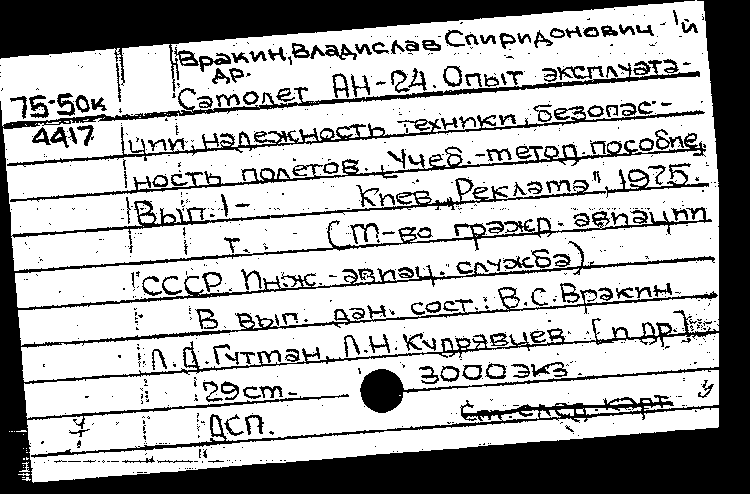 Вракин, Владислав Спиридонович и
др.
75-50к
Самолет АН-24. Опыт эксплуата-
4417
ции, надежность техники, безопас-
ность полетов. Учеб.-метод. пособие.
Вып. 1- Киев, "Реклама", 1975.
т. (М-во гражд. авиации
СССР. Инж.-авиац. служба).
В вып. дан. сост.: В.С. Вракин
Л.Д. Гутман, Л.Н. Кудрявцев [и др.]
29 см. 3000 экз.
ДСП. См. след. карт.